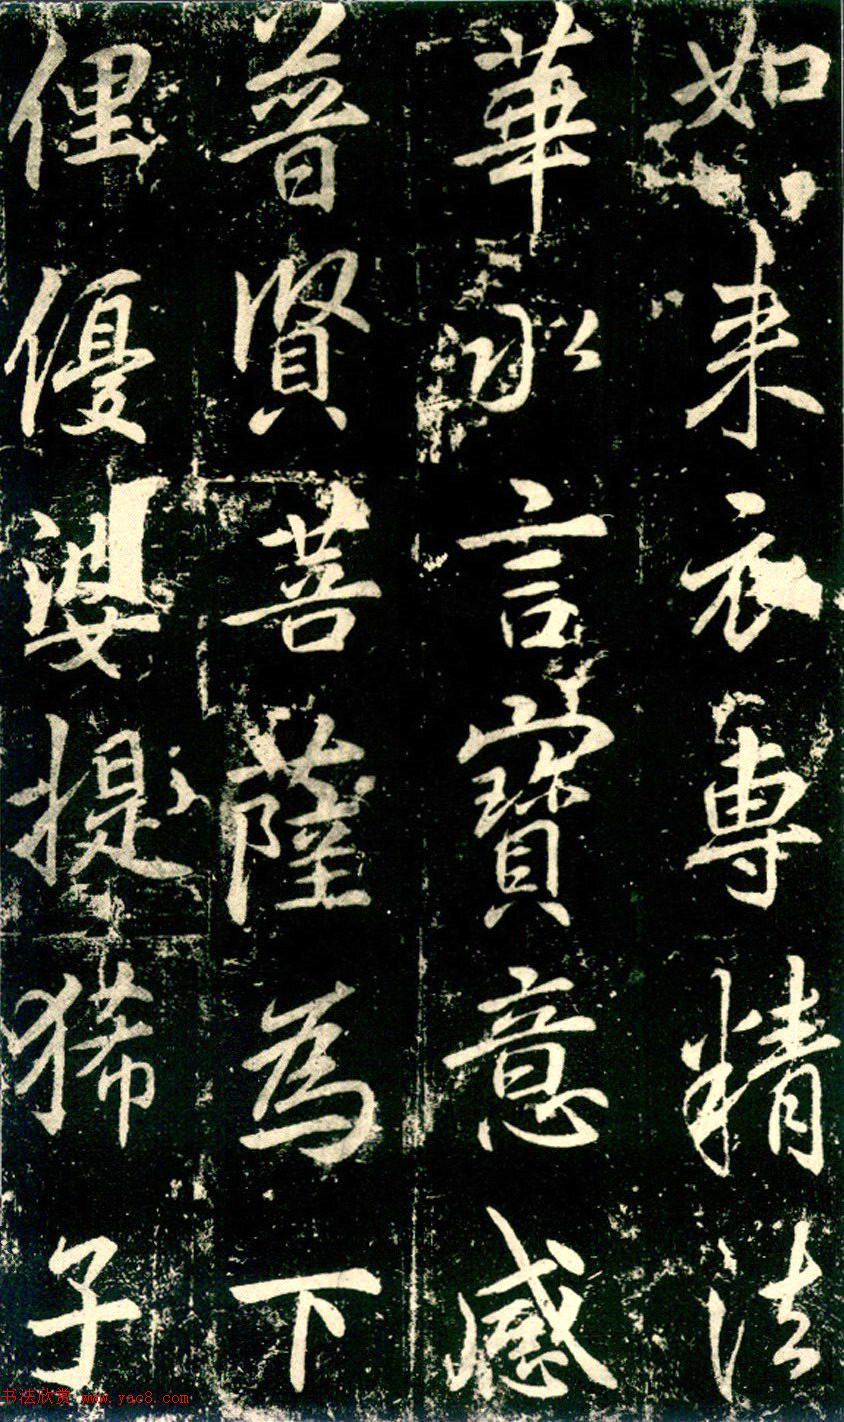 如来衣專精法
華永言寶意感
普賢菩薩為下
俚優婆提狶子
书法欣赏 www.yac8.com